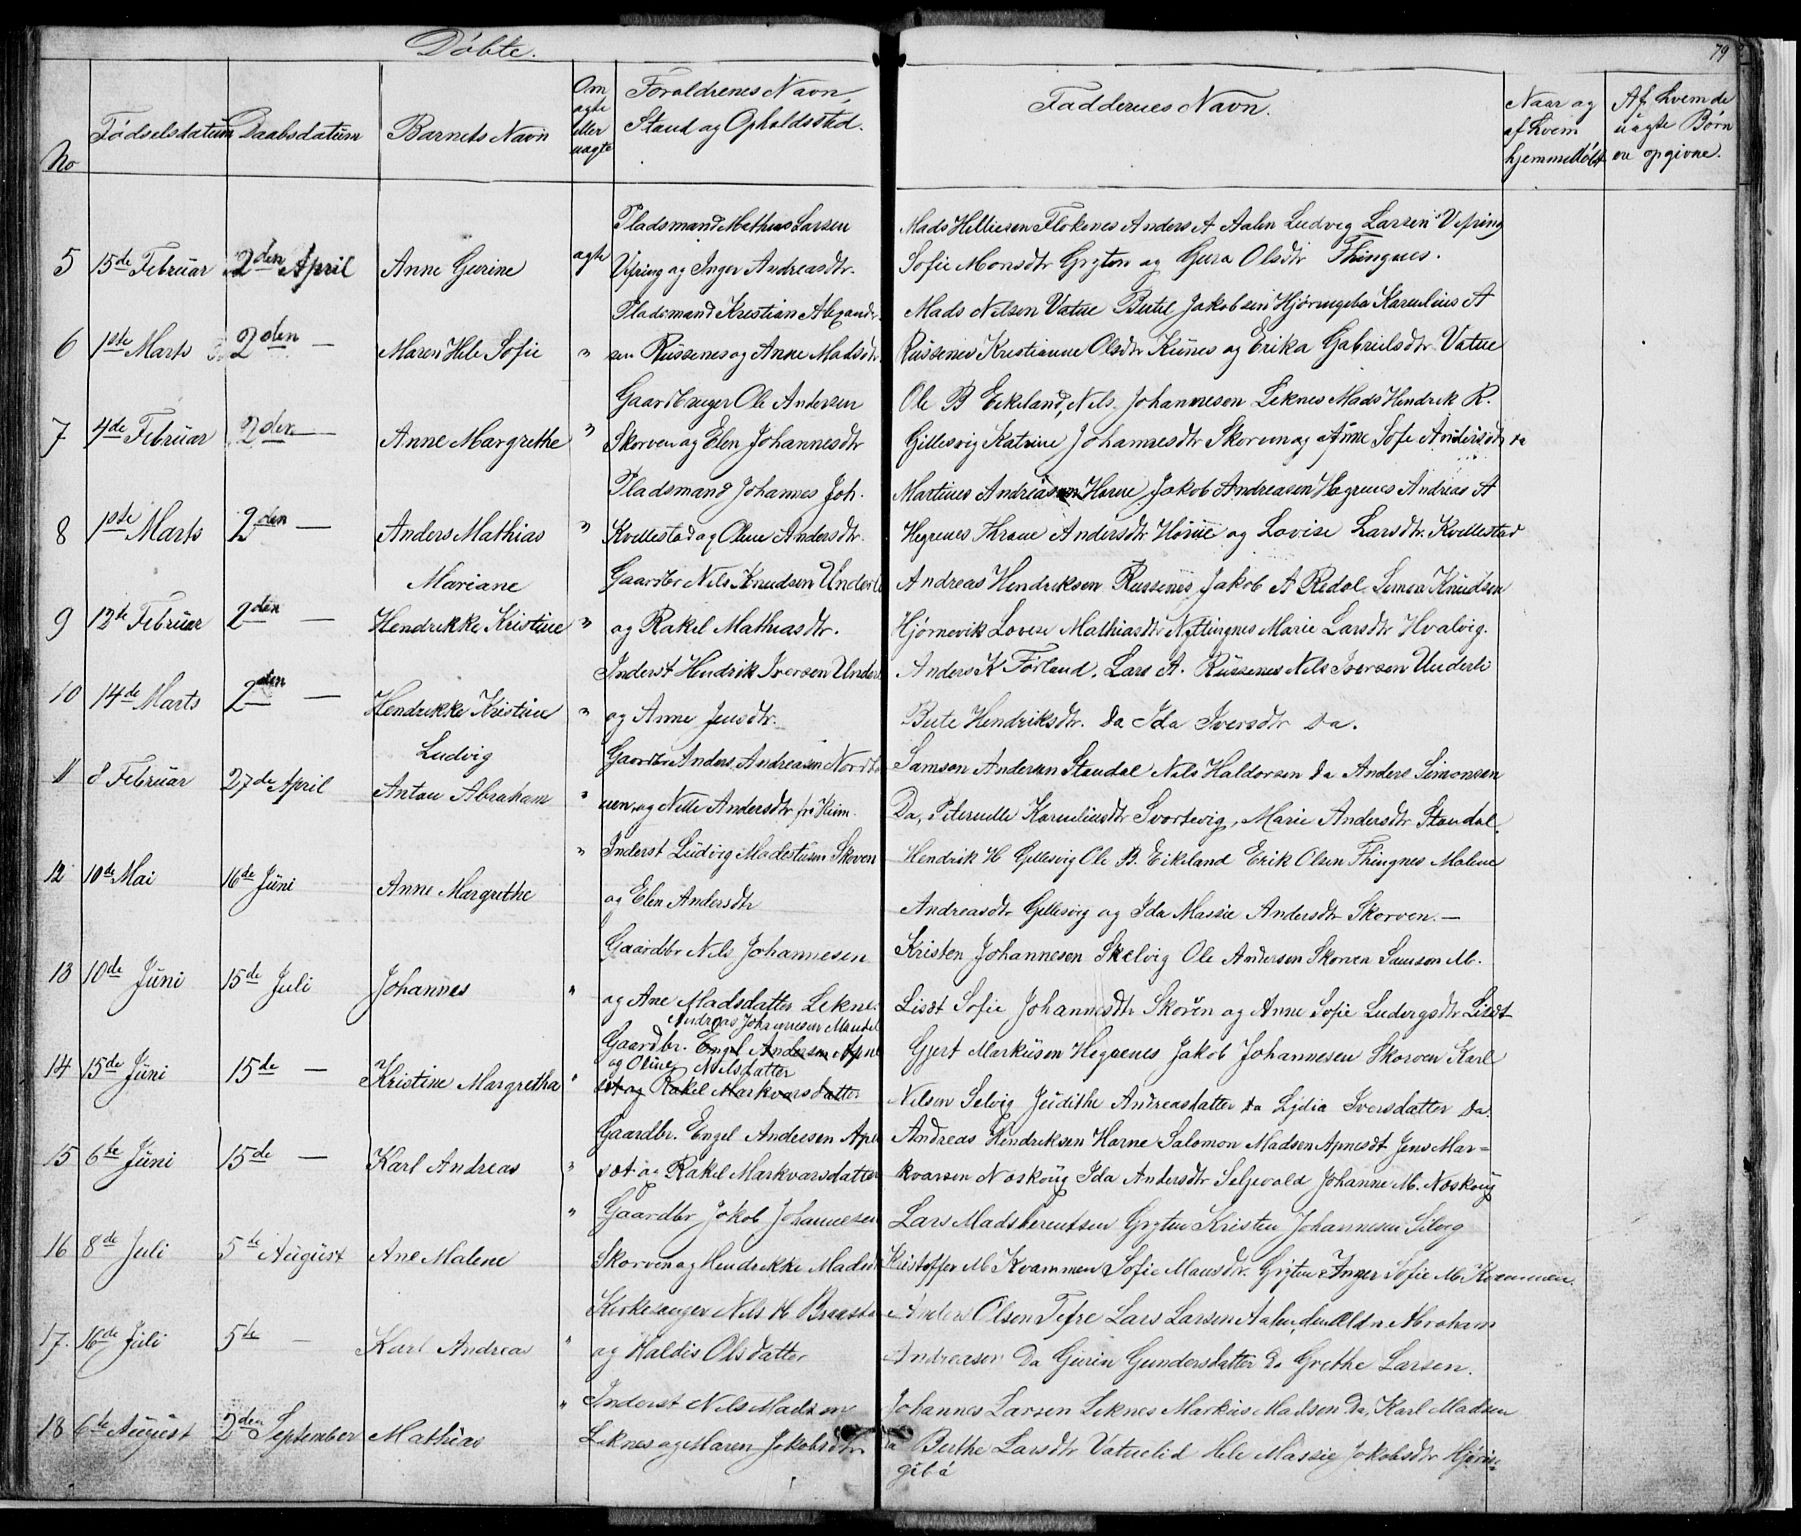 Døbte.
79
No
Fødselsdatum
Daabsdatum
Barnets Navn
Om ægte eller uægte
Forældrenes Navn, Stand og Opholdssted.
Faddernes Navn.
Naar og af hvem hjemmedøbt
Af hvem de uægte Børn ere opgivne.
Pladsmand Mathias Larsen Mads Helliesen Flokenes Anders A Aalen Ludvig Larsen Vefring
5 15de Februar 2den April Anne Gurine ægte Vefring og Inger Andreasdtr. Sofie Monsdtr Gryten og Gura Olsdtr Thingnes.
Pladsmand Kristian Alexander- Mads Nilsen Vatne Bertil Jakobsen Hjørungebø Karnelius A
6 1ste Marts 2den — Maren Hele Sofie " sen Russenes og Anne Madsdtr Russenes Kristianne Olsdtr Kunes og Erika Gabrielsdtr Vatne
Gaardbruger Ole Andersen Ole B Eikeland, Nils Johannesen Leknes Mads Hendrik R.
7 4de Februar 2den — Anne Margrethe " Skorven og Elen Johannesdtr Gillesvig Katrine Johannesdtr Skorven og Anne Sofi Andersdtr Da
Pladsmand Johannes Joh. Martines Andreasen Horne Jakob Andreasen Hegrenes Andreas A
8 1ste Marts 2den — Anders Mathias " Kvellestad og Oline Andersdtr. Hegrenes Thrane Andersdtr Horne og Lovise Larsdtr. Kvellestad
Mariane Gaardbr Nils Knudsen Underli Andreas Hendriksen Russenes, Jakob A Redal Simon Knudsen
9 12te Februar 2den — Hendrikke Kristine " og Rakel Mathiasdtr. Hjørnevik Lovise Mathiasdtr Nyttingnes Marie Larsdtr Hvalvig.
Inderst Hendrik Iversen Underli Anders K Førland. Lars A. Russenes Nils Iversen Underli
10 14de Marts 2den — Hendrikke Kristine " og Anne Jensdtr. Berte Hendriksdtr. Da Ida Iversdtr Da.
Ludvig Gaardbr Anders Andreasen Nordt Samson Andersen Standal Nils Haldorsen Da Anders Simonsen
11 8 Februar 27de April Anton Abraham " nen og Nille Andersdtr fra Da, Peternelle Karneliusdtr Svortevig, Marie Andersdtr Standal.
" Inderst Ludvig Modestusen Skorven Hendrik H Gillesvig Ole B. Eikeland Erik Olsen Thingnes Malene
12 10de Mai 16de Juni Anne Margrethe og Elen Andersdtr Andreasdtr Gillesvig og Ida Massie Andersdtr Skorven. —
Gaardbr Nils Johannesen Kristen Johannesen Skelvig Ole Andersen Skorven Samson M.
13 10de Juni 15de Juli Johannes " og Ane Madsdatter Lekne. Lisdt Sofie Johannesdtr Skorven og Anne Sofie Ludvigsdtr Lisdt
Andreas Johannesen Standal
Gaardbr. Engel Andersen Apne Gjert Markusen Hegrenes Jakob Johannesen Skorven Karl
og Oline Nilsdatter
14 15de Juni 15de — Kristine Margretha " set og Rakel Markvarsdatter Nilsen Selvig Judithe Andreasdatter Da Lydia Iversdatter Da.
Gaardbr. Engel Andersen Apne Andreas Hendriksen Horne Salomon Madsen Apnesdt Jens Mar=
15 6te Juni 15de — Karl Andreas " set og Rakel Markvarsdatter kvarsen Noskoug Ida Andersdtr Seljevold Johanne M. Noskoug
" Gaardbr Jakob Johannesen Lars Madsberentsen Gryten Kristen Johannesen Silvig
16 8de Juli 5te August Ane Malene Skorven og Hendrikke Madsdtr Kristoffer M Kvammen Sofie Monsdtr. Gryten Inger Sofie M. Kvammen.
Kirkesanger Nils H Braasta Anders Olsen Tefre Lars Larsen Aalen, den Ældre Abraham
17. 16de Juli 5te — Karl Andreas " og Haldis Olsdatter Andreasen Da Gurin Gundersdatter Do Grethe Larsen.
" Inderst Nils Madsen Johannes Larsen Leknes Markus Madsen Da, Karl Madsen
18 6te August 2den September Mathias Leknes og Maren Jakobsdtr Da Berthe Larsdtr Vatnelid Hele Massie Jakobsdtr Hjørin-
gibø